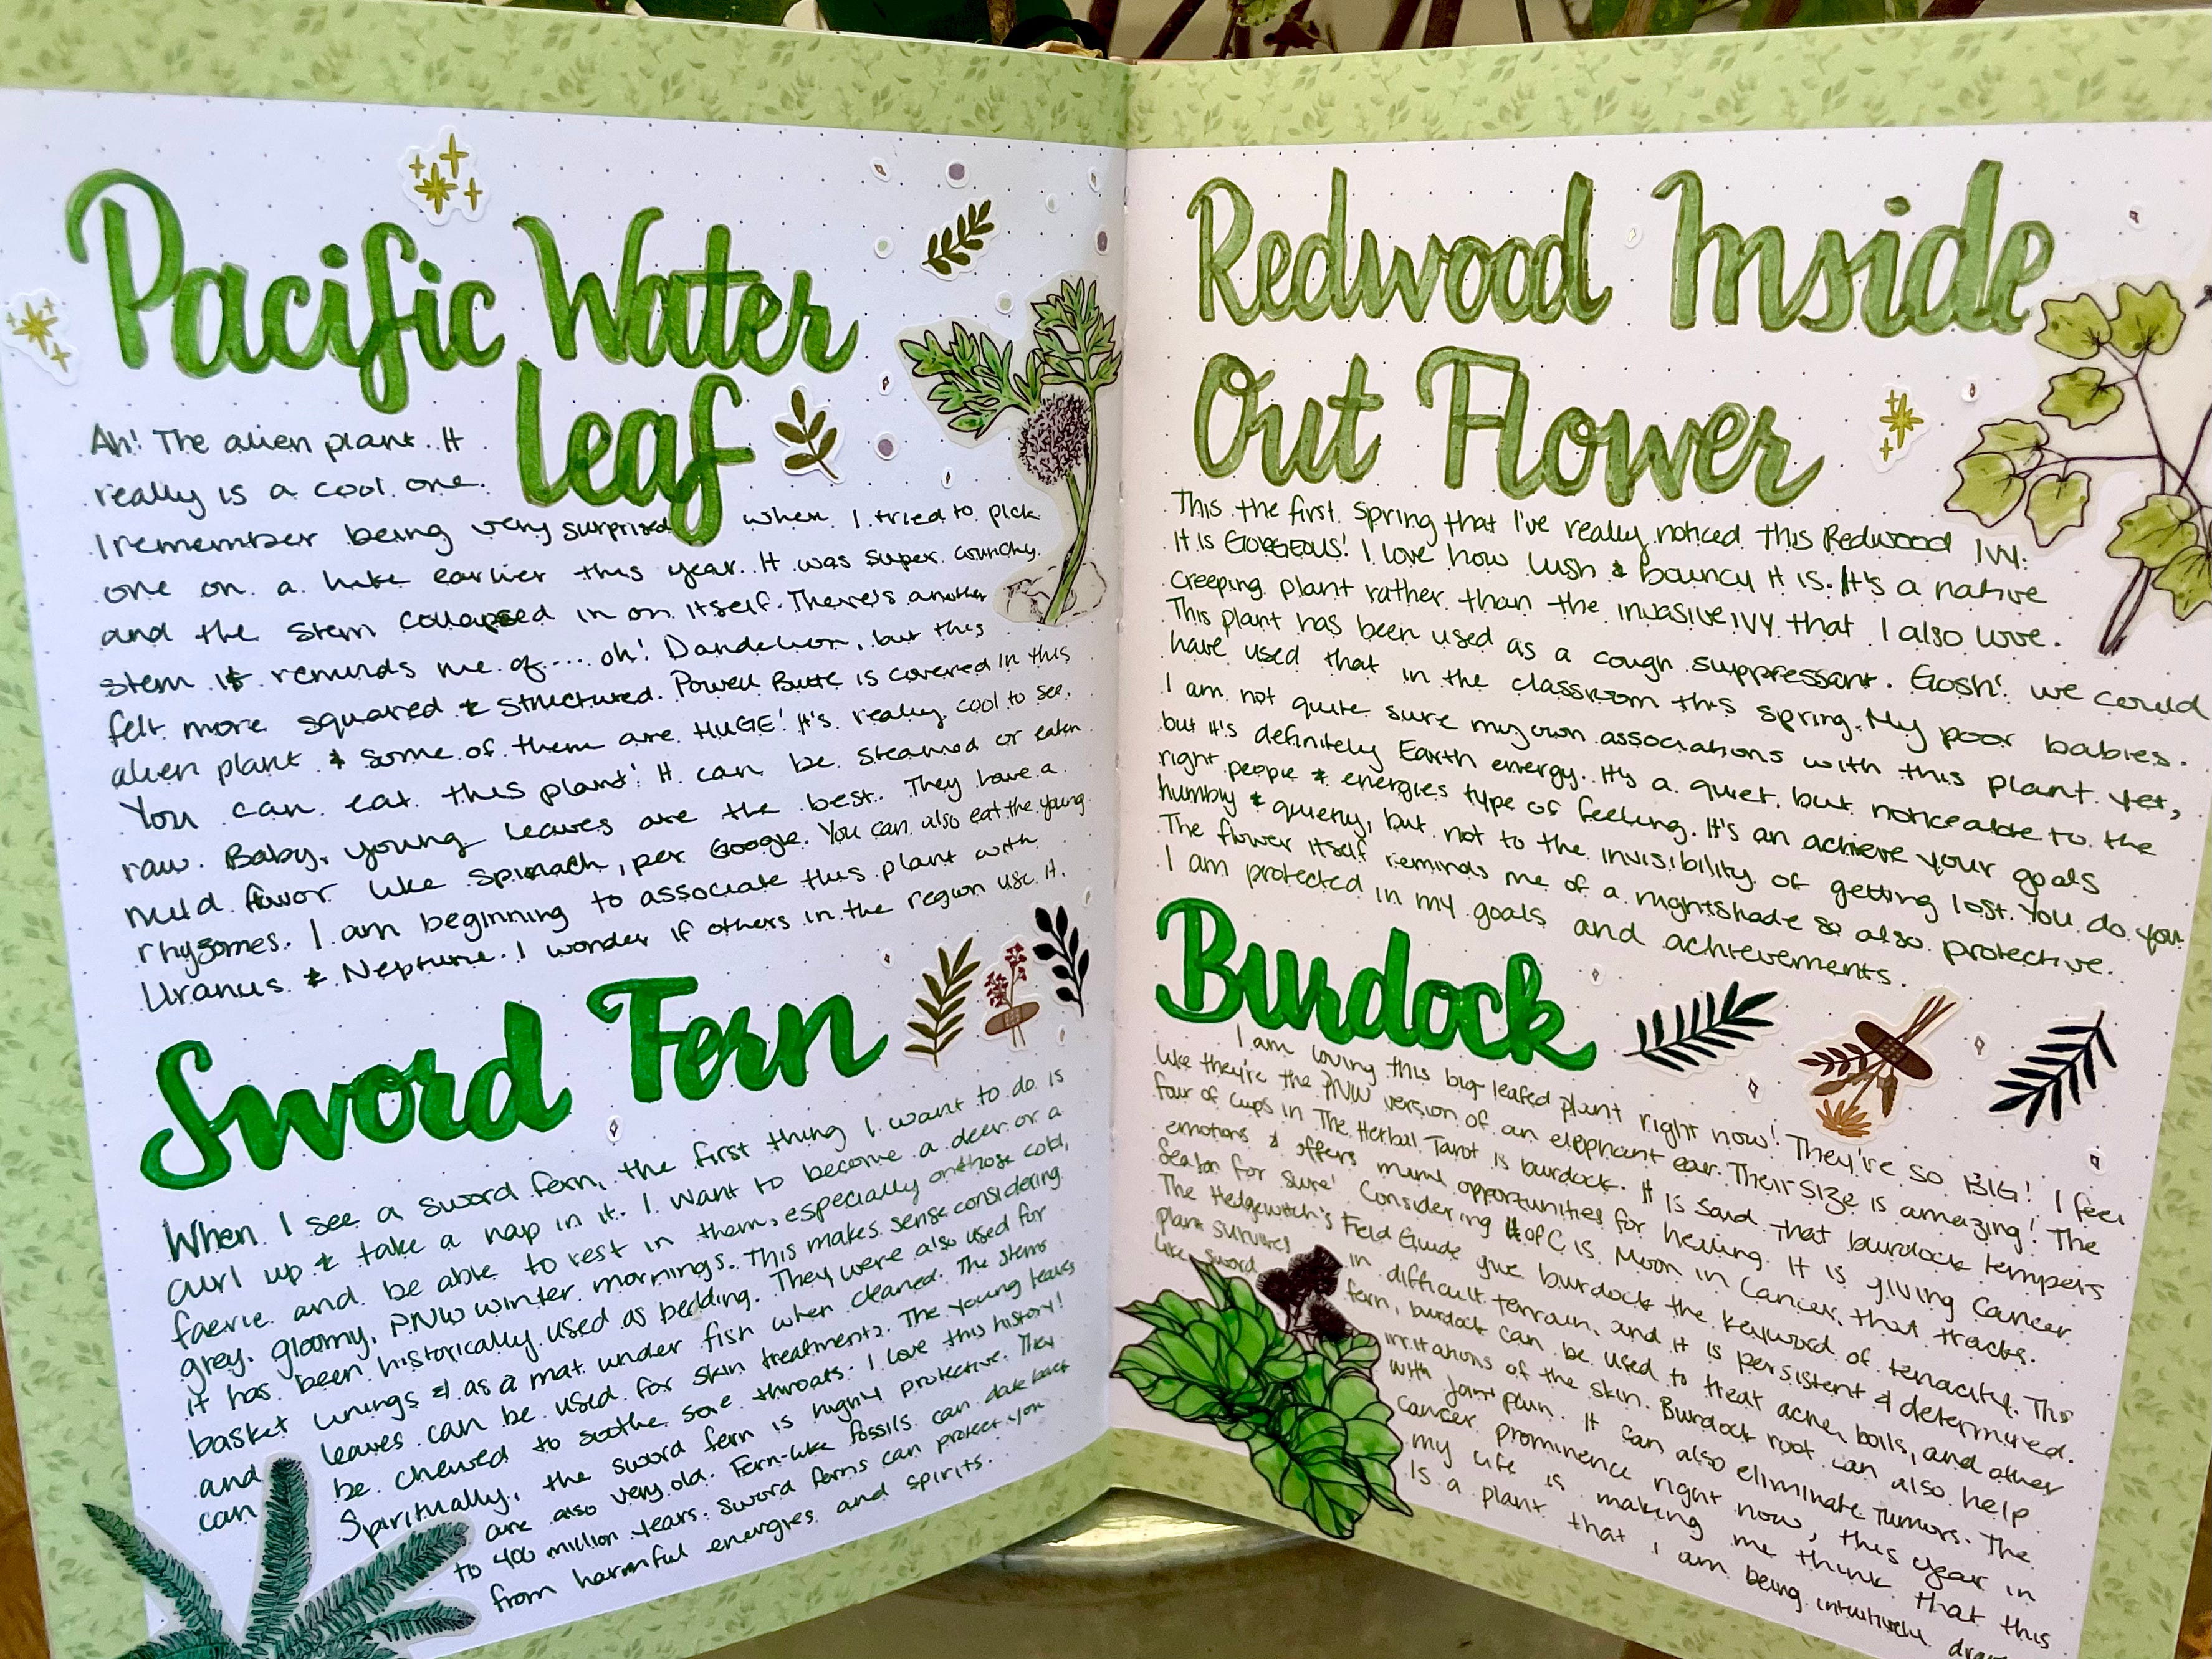 Pacific Water
Leaf
Ah! The alien plant. It
really is a cool one.
I remember being very surprised when I tried to pick
one on a hike earlier this year. It was super crunchy
and the stem collapsed in on itself. There's another
stem it reminds me of.... oh! Dandelion, but this
felt more squared & structured. Powell Butte is covered in this
alien plant & some of them are HUGE! It's really cool to see.
You can eat this plant! It can be steamed or eaten
raw. Baby, young leaves are the best. They have a
mild flavor like spinach, per Google. You can also eat the young
rhyzomes. I am beginning to associate this plant with
Uranus & Neptune. I wonder if others in the region use it.
Sword Fern
When I see a sword fern, the first thing I want to do is
curl up & take a nap in it. I want to become a deer or a
faerie and be able to rest in them, especially on those cold,
grey, gloomy, PNW winter mornings. This makes sense considering
it has been historically used as bedding. They were also used for
basket linings & as a mat under fish when cleaned. The stems
and leaves can be used for skin treatments. The young leaves
can be chewed to soothe sore throats. I love this history!
Spiritually, the sword fern is highly protective. They
are also very old. Fern-like fossils can date back
to 400 million years. Sword ferns can protect you
from harmful energies and spirits.
Redwood Inside
Out Flower
This the first Spring that I've really noticed this Redwood Ivy.
It is GORGEOUS! I love how lush & bouncy it is. It's a native
creeping plant rather than the invasive ivy that I also love.
This plant has been used as a cough suppressant. Gosh! we could
have used that in the classroom this spring. My poor babies.
I am not quite sure my own associations with this plant yet,
but it's definitely Earth energy. It's a quiet, but noticeable to the
right people & energies type of feeling. It's an achieve your goals
humbly & quietly, but not to the invisibility of getting lost. You do you.
The flower itself reminds me of a nightshade so also protective.
I am protected in my goals and achievements.
Burdock
I am loving this big leafed plant right now! They're so BIG! I feel
like they're the PNW version of an elephant ear. Their size is amazing! The
four of cups in The Herbal Tarot is burdock. It is said that burdock tempers
emotions & offers opportunities for healing. It is giving Cancer
Season for sure! Considering 4 of C is Moon in Cancer, that tracks.
The Hedgewitch's Field Guide give burdock the keyword of tenacity. This
plant survives in difficult terrain, and it is persistent & determined.
like sword fern, burdock can be used to treat acne, boils, and other
irritations of the skin. Burdock root can also help
with joint pain. It can also eliminate tumors. The
cancer prominence right now, this year in
my life is making me think that this
is a plant that I am being intuitively